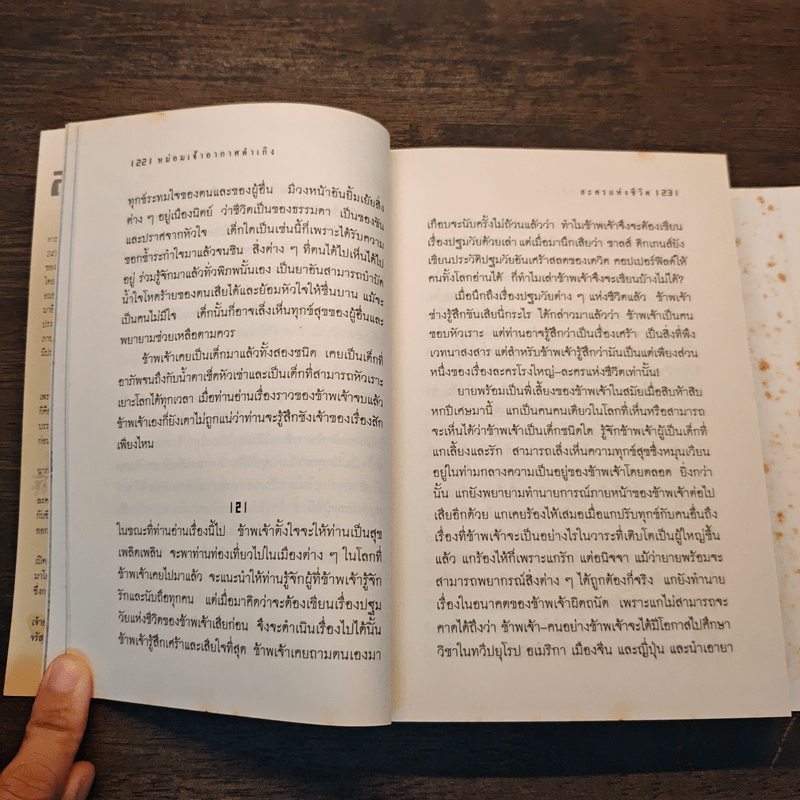 |22| หม่อมเจ้าอากาศดำเกิง
ทุกข์ระทมใจของตนและของผู้อื่น มีวงหน้าอันยิ้มเย้ยสิ่ง
ต่าง ๆ อยู่เนืองนิตย์ ว่าชีวิตเป็นของธรรมดา เป็นของขัน
และปราศจากหัวใจ เด็กใดเป็นเช่นนี้ก็เพราะได้รับความ
ชอกช้ำระกำใจมาแล้วจนชิน สิ่งต่าง ๆ ที่ตนได้ไปเห็นได้ไป
อยู่ ร่วมรู้จักมาแล้วทั่วพิภพนั้นเอง เป็นยาอันสามารถบำบัด
น้ำใจโหดร้ายของตนเสียได้และย้อมหัวใจให้ชื่นบาน แม้จะ
เป็นคนไม่มีใจ เด็กนั้นก็อาจเล็งเห็นทุกข์สุขของผู้อื่นและ
พยายามช่วยเหลือตามควร
ข้าพเจ้าเคยเป็นเด็กมาแล้วทั้งสองชนิด เคยเป็นเด็กที่
อาภัพจนถึงกับน้ำตาเช็ดหัวเข่าและเป็นเด็กที่สามารถหัวเราะ
เยาะโลกได้ทุกเวลา เมื่อท่านอ่านเรื่องราวของข้าพเจ้าจบแล้ว
ข้าพเจ้าเองก็ยังเดาไม่ถูกแน่ว่าท่านจะรู้สึกชังเจ้าของเรื่องสัก
เพียงไหน
|2|
ในขณะที่ท่านอ่านเรื่องนี้ไป ข้าพเจ้าตั้งใจจะให้ท่านเป็นสุข
เพลิดเพลิน จะพาท่านท่องเที่ยวไปในเมืองต่าง ๆ ในโลกที่
ข้าพเจ้าเคยไปมาแล้ว จะแนะนำให้ท่านรู้จักผู้ที่ข้าพเจ้ารู้จัก
รักและนับถือทุกคน แต่เมื่อมาคิดว่าจะต้องเขียนเรื่องปฐม
วัยแห่งชีวิตของข้าพเจ้าเสียก่อน จึงจะดำเนินเรื่องไปได้นั้น
ข้าพเจ้ารู้สึกเศร้าและเสียใจที่สุด ข้าพเจ้าเคยถามตนเองมา
ละครแห่งชีวิต |23|
เกือบจะนับครั้งไม่ถ้วนแล้วว่า ทำไมข้าพเจ้าจึงจะต้องเขียน
เรื่องปฐมวัยด้วยเล่า แต่เมื่อมานึกเสียว่า ชาลส์ ดิกเกนส์ยัง
เขียนประวัติปฐมวัยอันเศร้าสลดของเดวิด คอปเปอร์ฟิลด์ให้
คนทั้งโลกอ่านได้ ก็ทำไมเล่าข้าพเจ้าจึงจะเขียนบ้างไม่ได้?
เมื่อนึกถึงเรื่องปฐมวัยต่าง ๆ แห่งชีวิตแล้ว ข้าพเจ้า
ช่างรู้สึกขันเสียนี่กระไร ได้กล่าวมาแล้วว่า ข้าพเจ้าเป็นคน
ชอบหัวเราะ แต่ท่านอาจรู้สึกว่าเป็นเรื่องเศร้า เป็นสิ่งที่พึง
เวทนาสงสาร แต่สำหรับข้าพเจ้ารู้สึกว่ามันเป็นแต่เพียงส่วน
หนึ่งของเรื่องละครโรงใหญ่-ละครแห่งชีวิตเท่านั้น!
ยายพร้อมเป็นพี่เลี้ยงของข้าพเจ้าในสมัยเมื่อสิบห้าสิบ
หกปีเศษมานี้ แกเป็นคนคนเดียวในโลกที่เห็นหรือสามารถ
จะเห็นได้ว่าข้าพเจ้าเป็นเด็กชนิดใด รู้จักข้าพเจ้าผู้เป็นเด็กที่
แกเลี้ยงและรัก สามารถเล็งเห็นความทุกข์สุขซึ่งหมุนเวียน
อยู่ในท่ามกลางความเป็นอยู่ของข้าพเจ้าโดยตลอด ยิ่งกว่า
นั้น แกยังพยายามทำนายการณ์ภายหน้าของข้าพเจ้าต่อไป
เสียอีกด้วย แกเคยร้องไห้เสมอเมื่อแกปรับทุกข์กับคนอื่นถึง
เรื่องที่ข้าพเจ้าจะเป็นอย่างไรในวาระที่เติบโตเป็นผู้ใหญ่ขึ้น
แล้ว แกร้องไห้ก็เพราะแกรัก แต่อนิจจา แม้ว่ายายพร้อมจะ
สามารถพยากรณ์สิ่งต่าง ๆ ได้ถูกต้องก็จริง แกยังทำนาย
เรื่องในอนาคตของข้าพเจ้าผิดถนัด เพราะแกไม่สามารถจะ
คาดได้ถึงว่า ข้าพเจ้า-คนอย่างข้าพเจ้าจะได้มีโอกาสไปศึกษา
วิชาในทวีปยุโรป อเมริกา เมืองจีน และญี่ปุ่น และนำเอายา